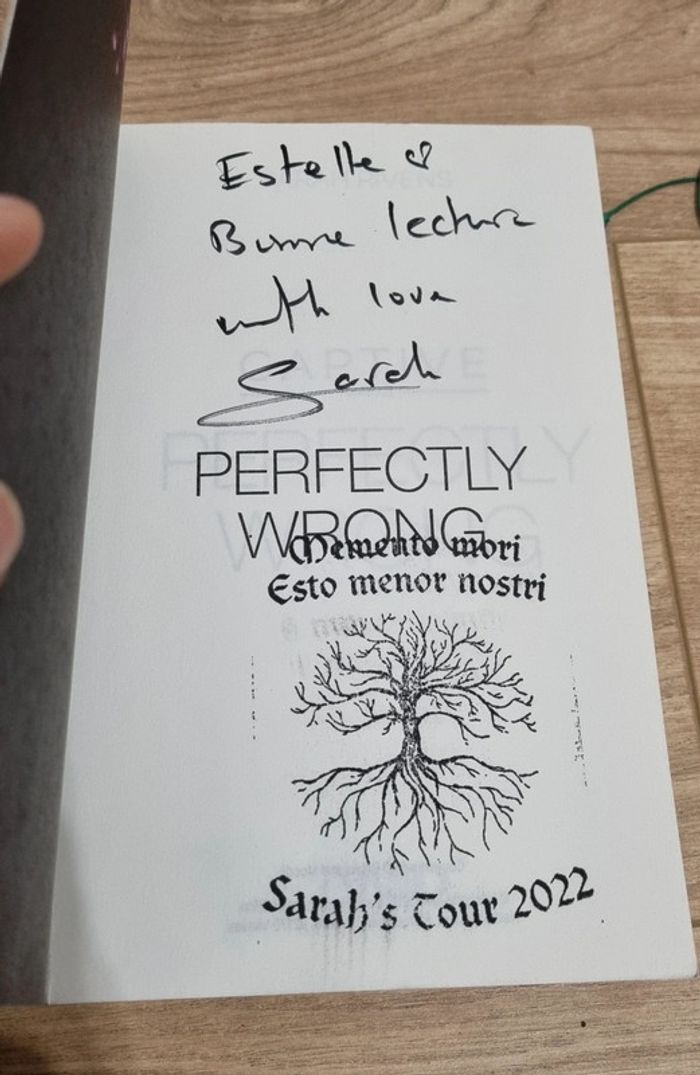 Estelle
Bonne lecture
with love
Sarah
PERFECTLY
WRONG
Memento mori
Esto menor nostri
Sarah's Tour 2022
CAPTIVE
PERFECTLY
WRONG